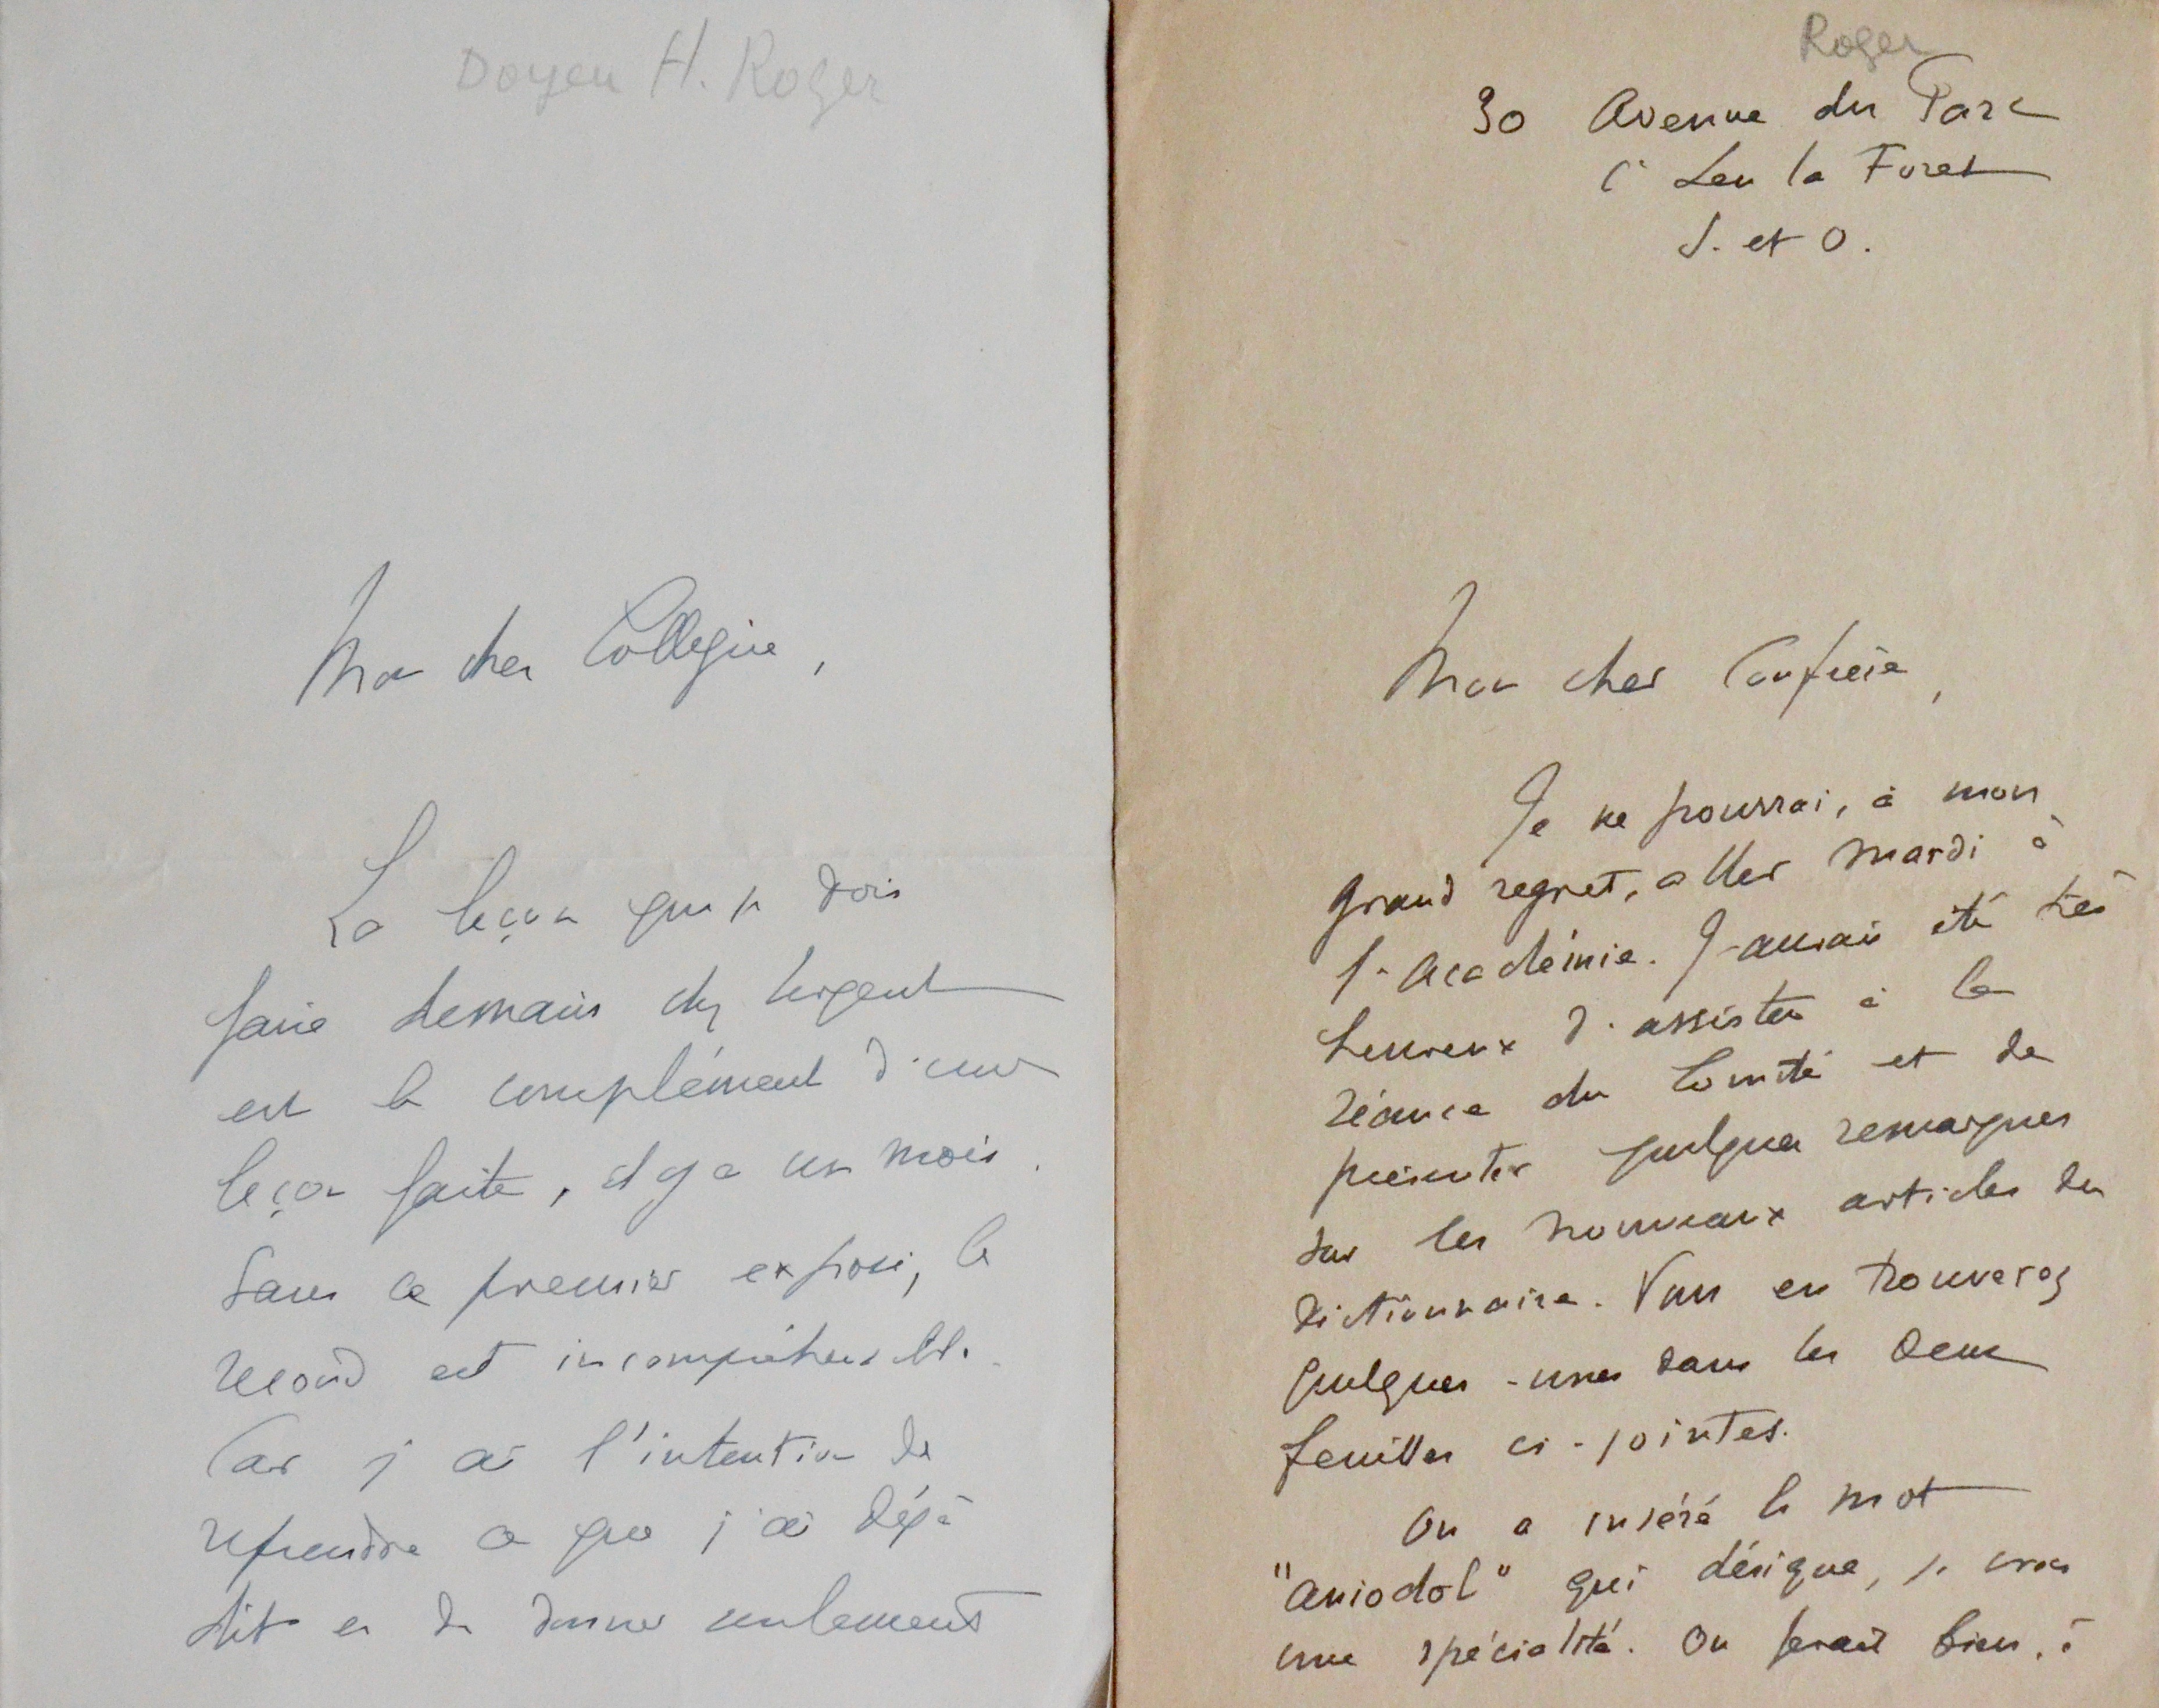 Doyen H. Roger
Mon cher Collègue,
La leçon que je dois
faire demain chez Sergent
est le complément d'une
leçon faite, il y a un mois.
Sans ce premier exposé, le
second est incompréhensible.
Car j'ai l'intention de
reprendre ce que j'ai déjà
dit et de donner seulement
Roger
30 Avenue du Parc
St Leu la Foret
S. et O.
Mon cher Confrère,
Je ne pourrai, à mon
grand regret, aller mardi à
l'Académie. J'aurais été très
heureux d'assister à la
séance du Comité et de
présenter quelques remarques
sur les nouveaux articles du
dictionnaire. Vous en trouverez
quelques-unes dans les deux
feuilles ci-jointes.
On a inséré le mot
"aniodol" qui désigne, je crois
une spécialité. On ferait bien, à